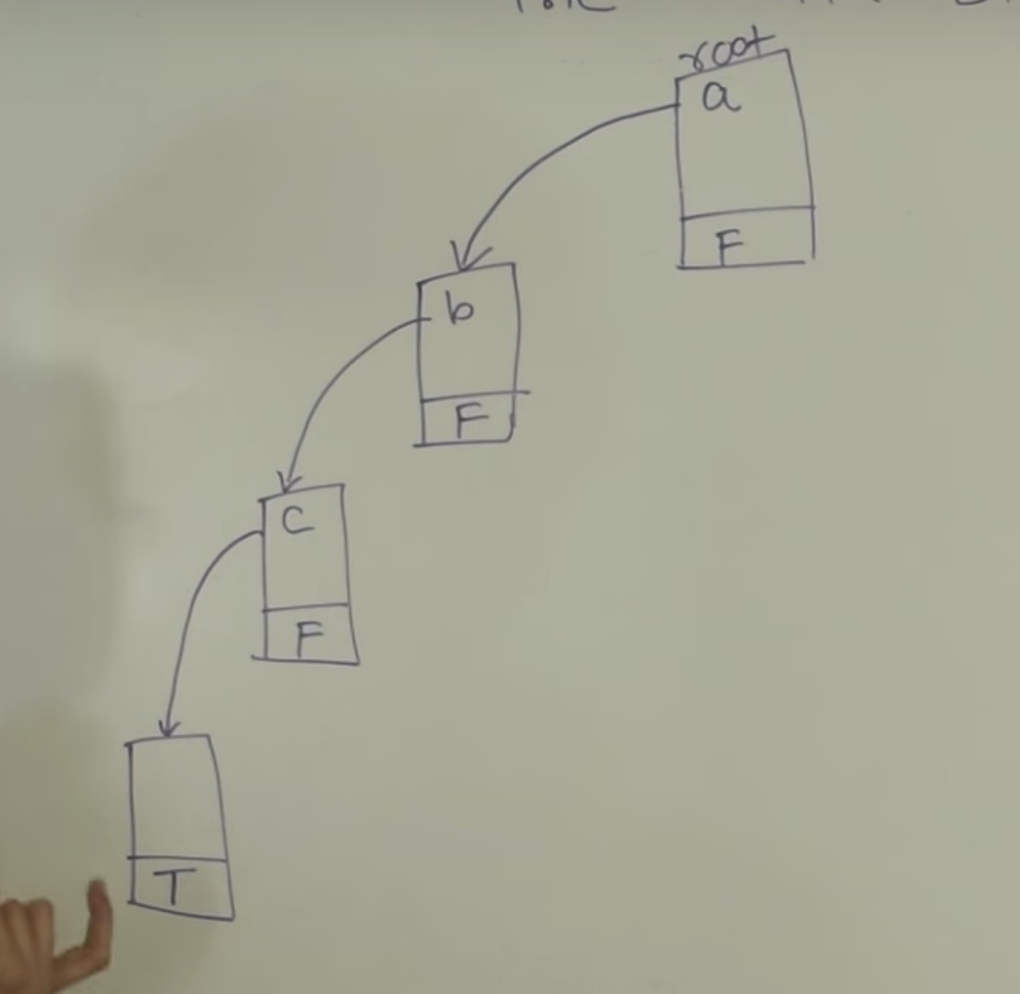 root
a
F
b
F
C
F
T